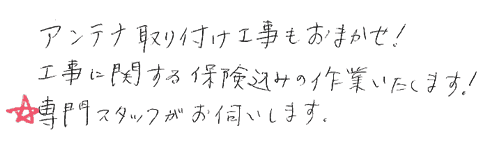 アンテナ取り付け工事もおまかせ!
工事に関する保険込みの作業いたします!
☆専門スタッフがお伺いします.